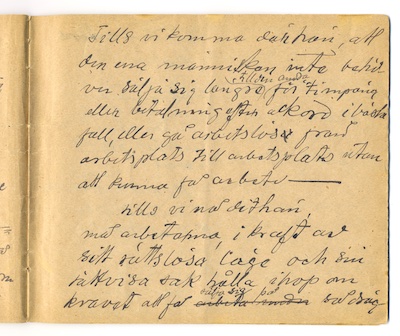 Tills vi komma därhän, att
den ena människan inte behö
ver sälja sig längre till en annan för timpäng
eller betalning efter ackord i bästa
fall, eller gå arbetslös från
arbetsplats till arbetsplats utan
att kunna få arbete —
tills vi nå dithän,
må arbetarna, i kraft av
sitt rättslösa läge och sin
rättvisa sak hålla ihop om
kravet att få